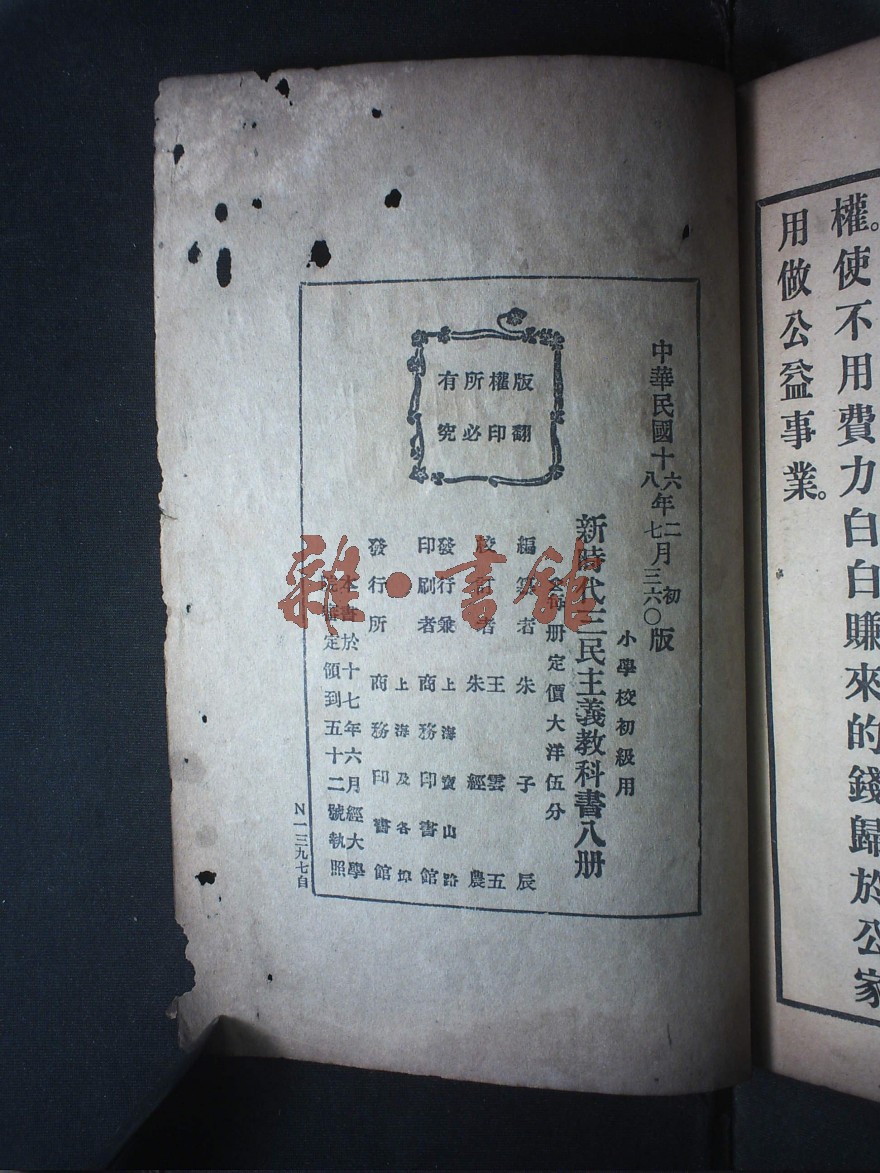 權。使不用費力白白賺來的錢歸於公家
用做公益事業。
中華民國十六年二月初版
八 七 三六〇
小學校初級用
新時代三民主義教科書八册
每册定價大洋伍分
編纂者 朱子辰
校訂者 王雲五
朱經農
發行兼印刷者 上海寶山路
商務印書館
發行所 上海及各埠
商務印書館
本書於十七年六月經大學
定領到五十二號執照
版權所有
翻印必究
N一三九七自
雜·書館